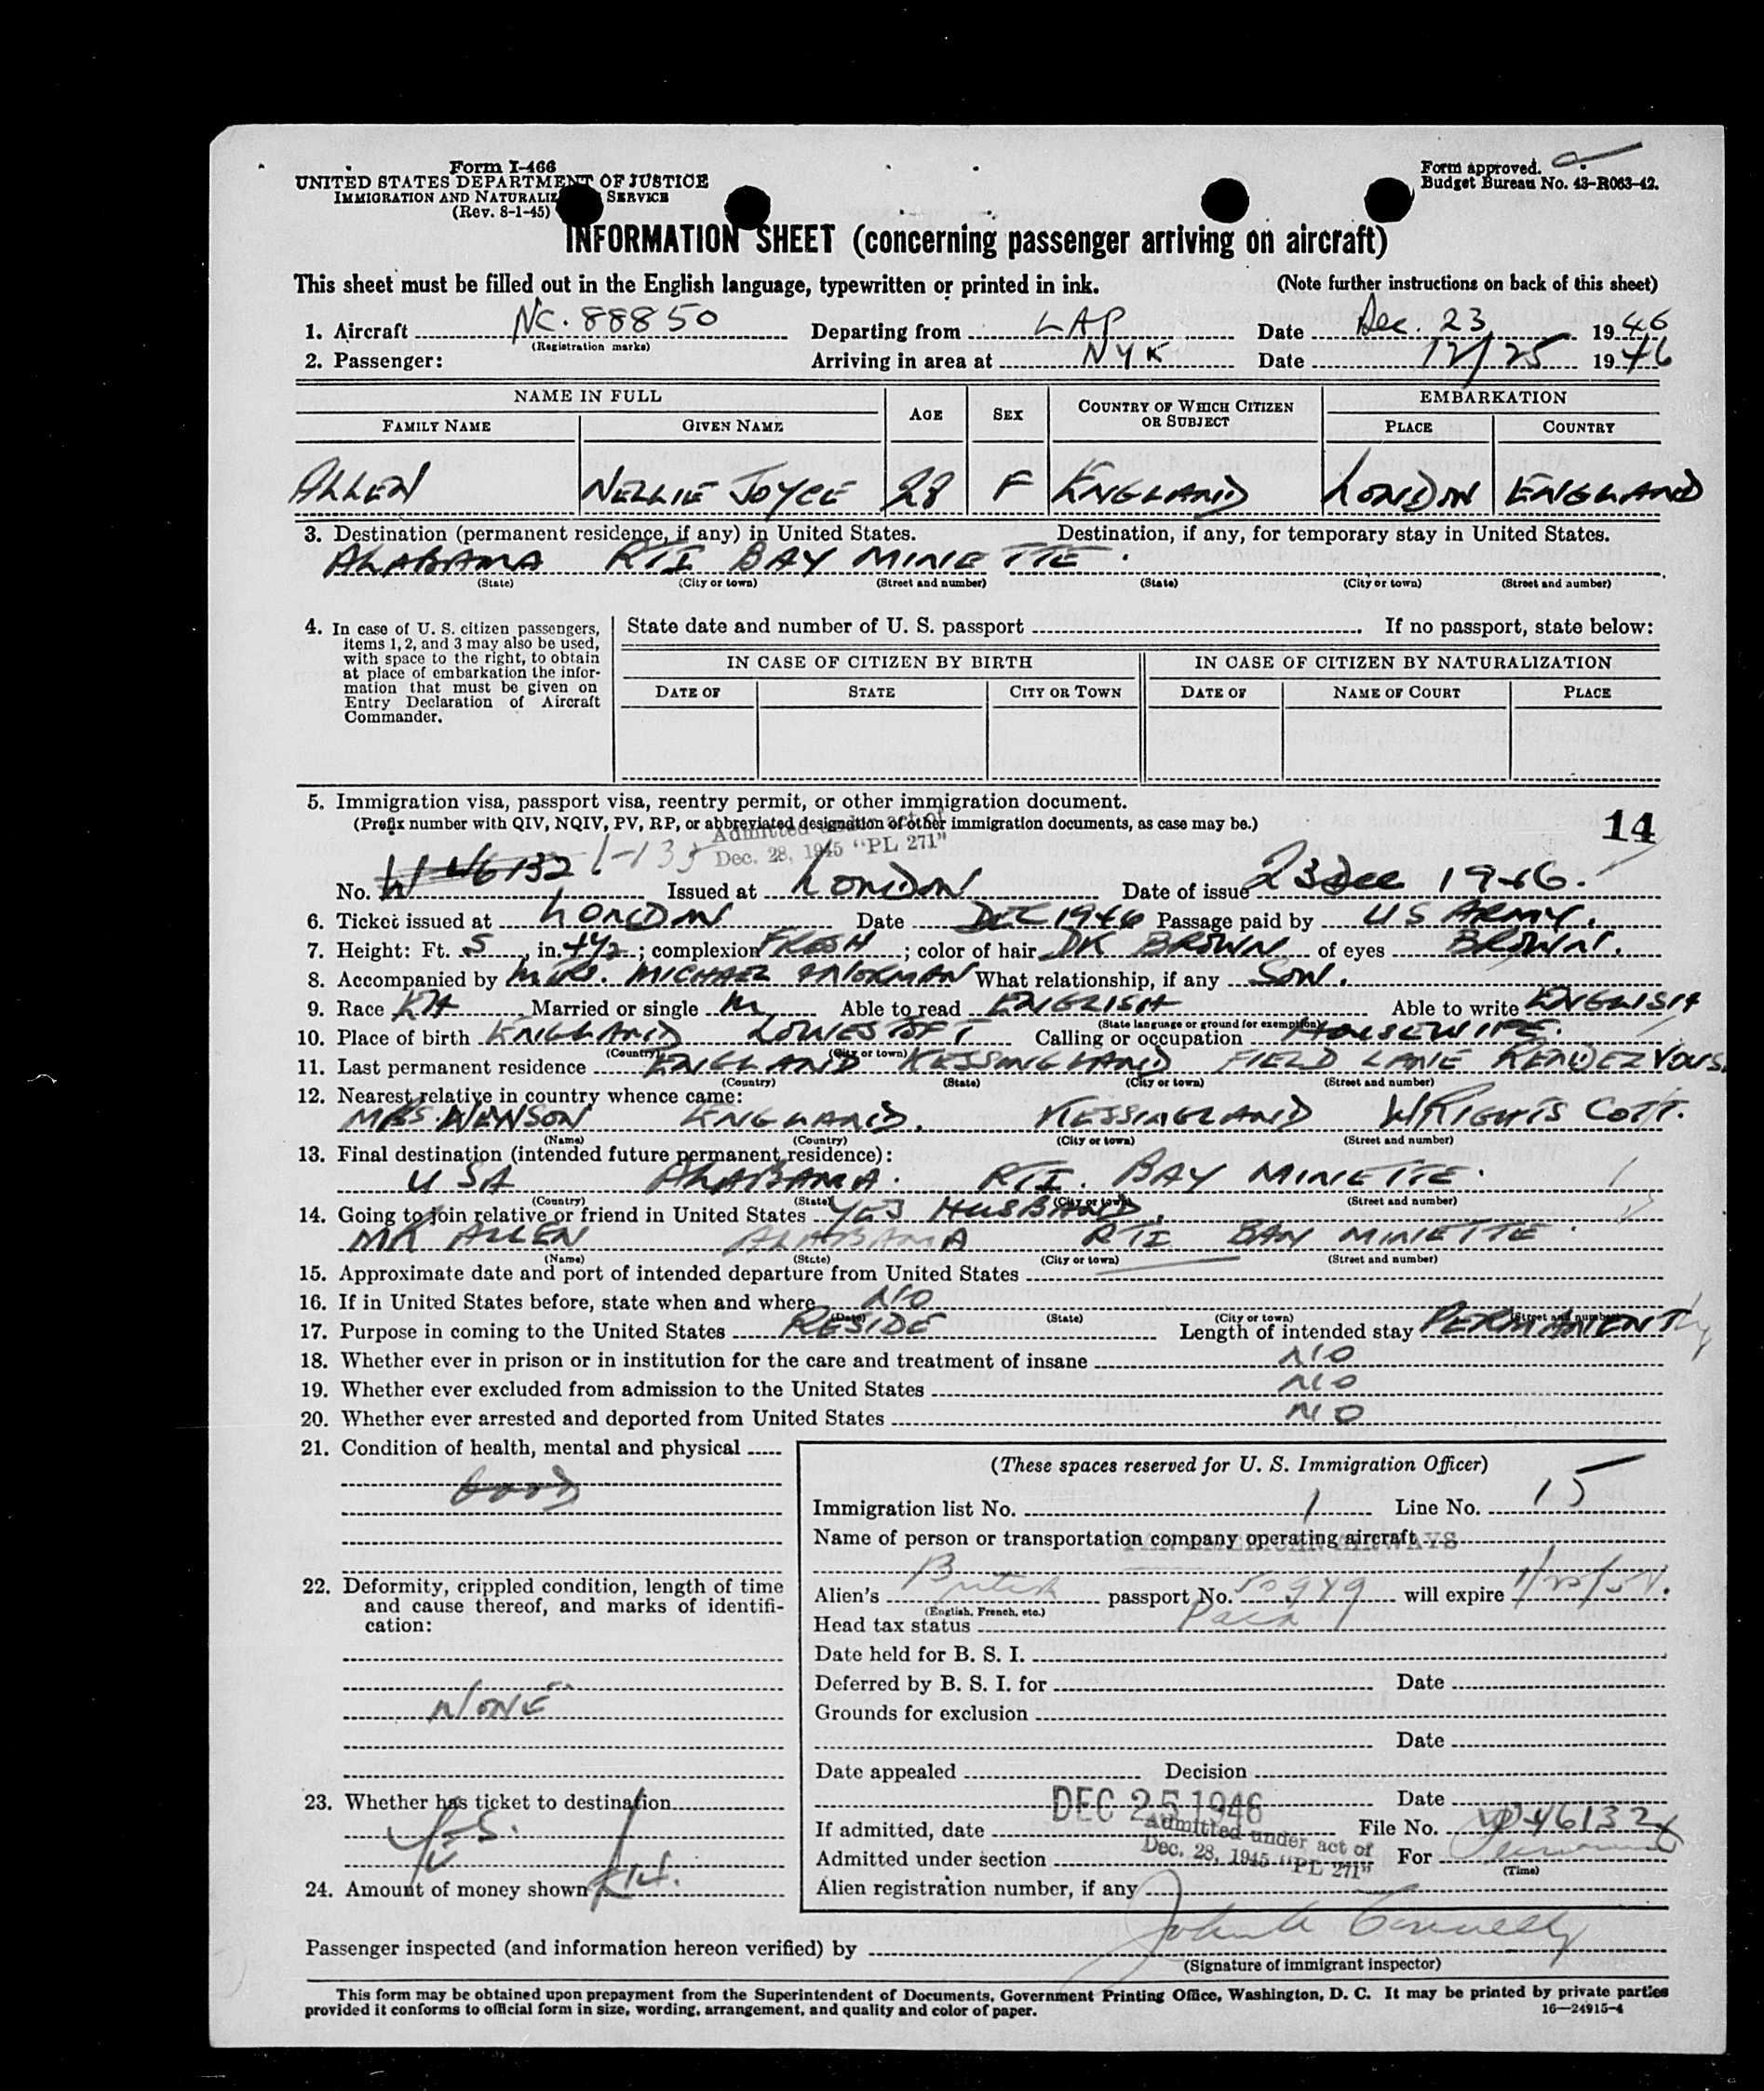 Form I-466
UNITED STATES DEPARTMENT OF JUSTICE
IMMIGRATION AND NATURALIZ SERVICE
(Rev. 8-1-45)
Form approved.
Budget Bureau No. 43-R063-42.
INFORMATION SHEET (concerning passenger arriving on aircraft)
This sheet must be filled out in the English language, typewritten or printed in ink. (Note further instructions on back of this sheet)
1. Aircraft NC. 88850 Departing from LAP Date Dec. 23 1946
(Registration marks)
2. Passenger: Arriving in area at NYK Date 12/25 1946
NAME IN FULL AGE SEX COUNTRY OF WHICH CITIZEN OR SUBJECT EMBARKATION
FAMILY NAME GIVEN NAME PLACE COUNTRY
ALLEN NELLIE JOYCE 28 F ENGLAND LONDON ENGLAND
3. Destination (permanent residence, if any) in United States. Destination, if any, for temporary stay in United States.
ALABAMA RTI BAY MINIETTE
(State) (City or town) (Street and number) (State) (City or town) (Street and number)
4. In case of U. S. citizen passengers, items 1, 2, and 3 may also be used, with space to the right, to obtain at place of embarkation the information that must be given on Entry Declaration of Aircraft Commander.
State date and number of U. S. passport If no passport, state below:
IN CASE OF CITIZEN BY BIRTH IN CASE OF CITIZEN BY NATURALIZATION
DATE OF STATE CITY OR TOWN DATE OF NAME OF COURT PLACE
5. Immigration visa, passport visa, reentry permit, or other immigration document.
(Prefix number with QIV, NQIV, PV, RP, or abbreviated designation of other immigration documents, as case may be.) 14
Admitted under act of
Dec. 28, 1945 "PL 271"
No. 46132 Issued at LONDON Date of issue 23 Dec 1946.
6. Ticket issued at LONDON Date DEC 1946 Passage paid by US ARMY.
7. Height: Ft. 5, in. 4½; complexion FRESH; color of hair DK BROWN of eyes BROWN.
8. Accompanied by MICHAEL NORMAN What relationship, if any SON.
9. Race Married or single M Able to read ENGLISH Able to write ENGLISH
(State language or ground for exemption)
10. Place of birth ENGLAND LOWESTOFT Calling or occupation HOUSEWIFE.
(Country) (City or town)
11. Last permanent residence ENGLAND KESSINGLAND FIELD LANE RENDEZVOUS.
(Country) (State) (City or town) (Street and number)
12. Nearest relative in country whence came:
MRS. ENGLAND. KESSINGLAND WRIGHTS COTT.
(Name) (Country) (City or town) (Street and number)
13. Final destination (intended future permanent residence):
USA ALABAMA. RTI. BAY MINIETTE.
(Country) (State) (City or town) (Street and number)
14. Going to join relative or friend in United States YES HUSBAND.
MR ALLEN ALABAMA RTI BAY MINIETTE
(Name) (State) (City or town) (Street and number)
15. Approximate date and port of intended departure from United States
16. If in United States before, state when and where NO
(Date) (State) (City or town) (Street and number)
17. Purpose in coming to the United States RESIDE Length of intended stay PERMANENTLY
18. Whether ever in prison or in institution for the care and treatment of insane NO
19. Whether ever excluded from admission to the United States NO
20. Whether ever arrested and deported from United States NO
21. Condition of health, mental and physical
Good
22. Deformity, crippled condition, length of time and cause thereof, and marks of identification:
NONE
23. Whether has ticket to destination
YES.
24. Amount of money shown
(These spaces reserved for U. S. Immigration Officer)
Immigration list No. 1 Line No. 15
Name of person or transportation company operating aircraft
PAN AMERICAN AIRWAYS
Alien's British passport No. will expire
(English, French, etc.)
Head tax status Paid
Date held for B. S. I.
Deferred by B. S. I. for Date
Grounds for exclusion
Date
Date appealed Decision
Date
DEC 25 1946
If admitted, date File No. 46132
Admitted under act of
Dec. 28, 1945 "PL 271"
Admitted under section For
(Time)
Alien registration number, if any
Passenger inspected (and information hereon verified) by
(Signature of immigrant inspector)
This form may be obtained upon prepayment from the Superintendent of Documents, Government Printing Office, Washington, D. C. It may be printed by private parties
provided it conforms to official form in size, wording, arrangement, and quality and color of paper. 16—24915-4